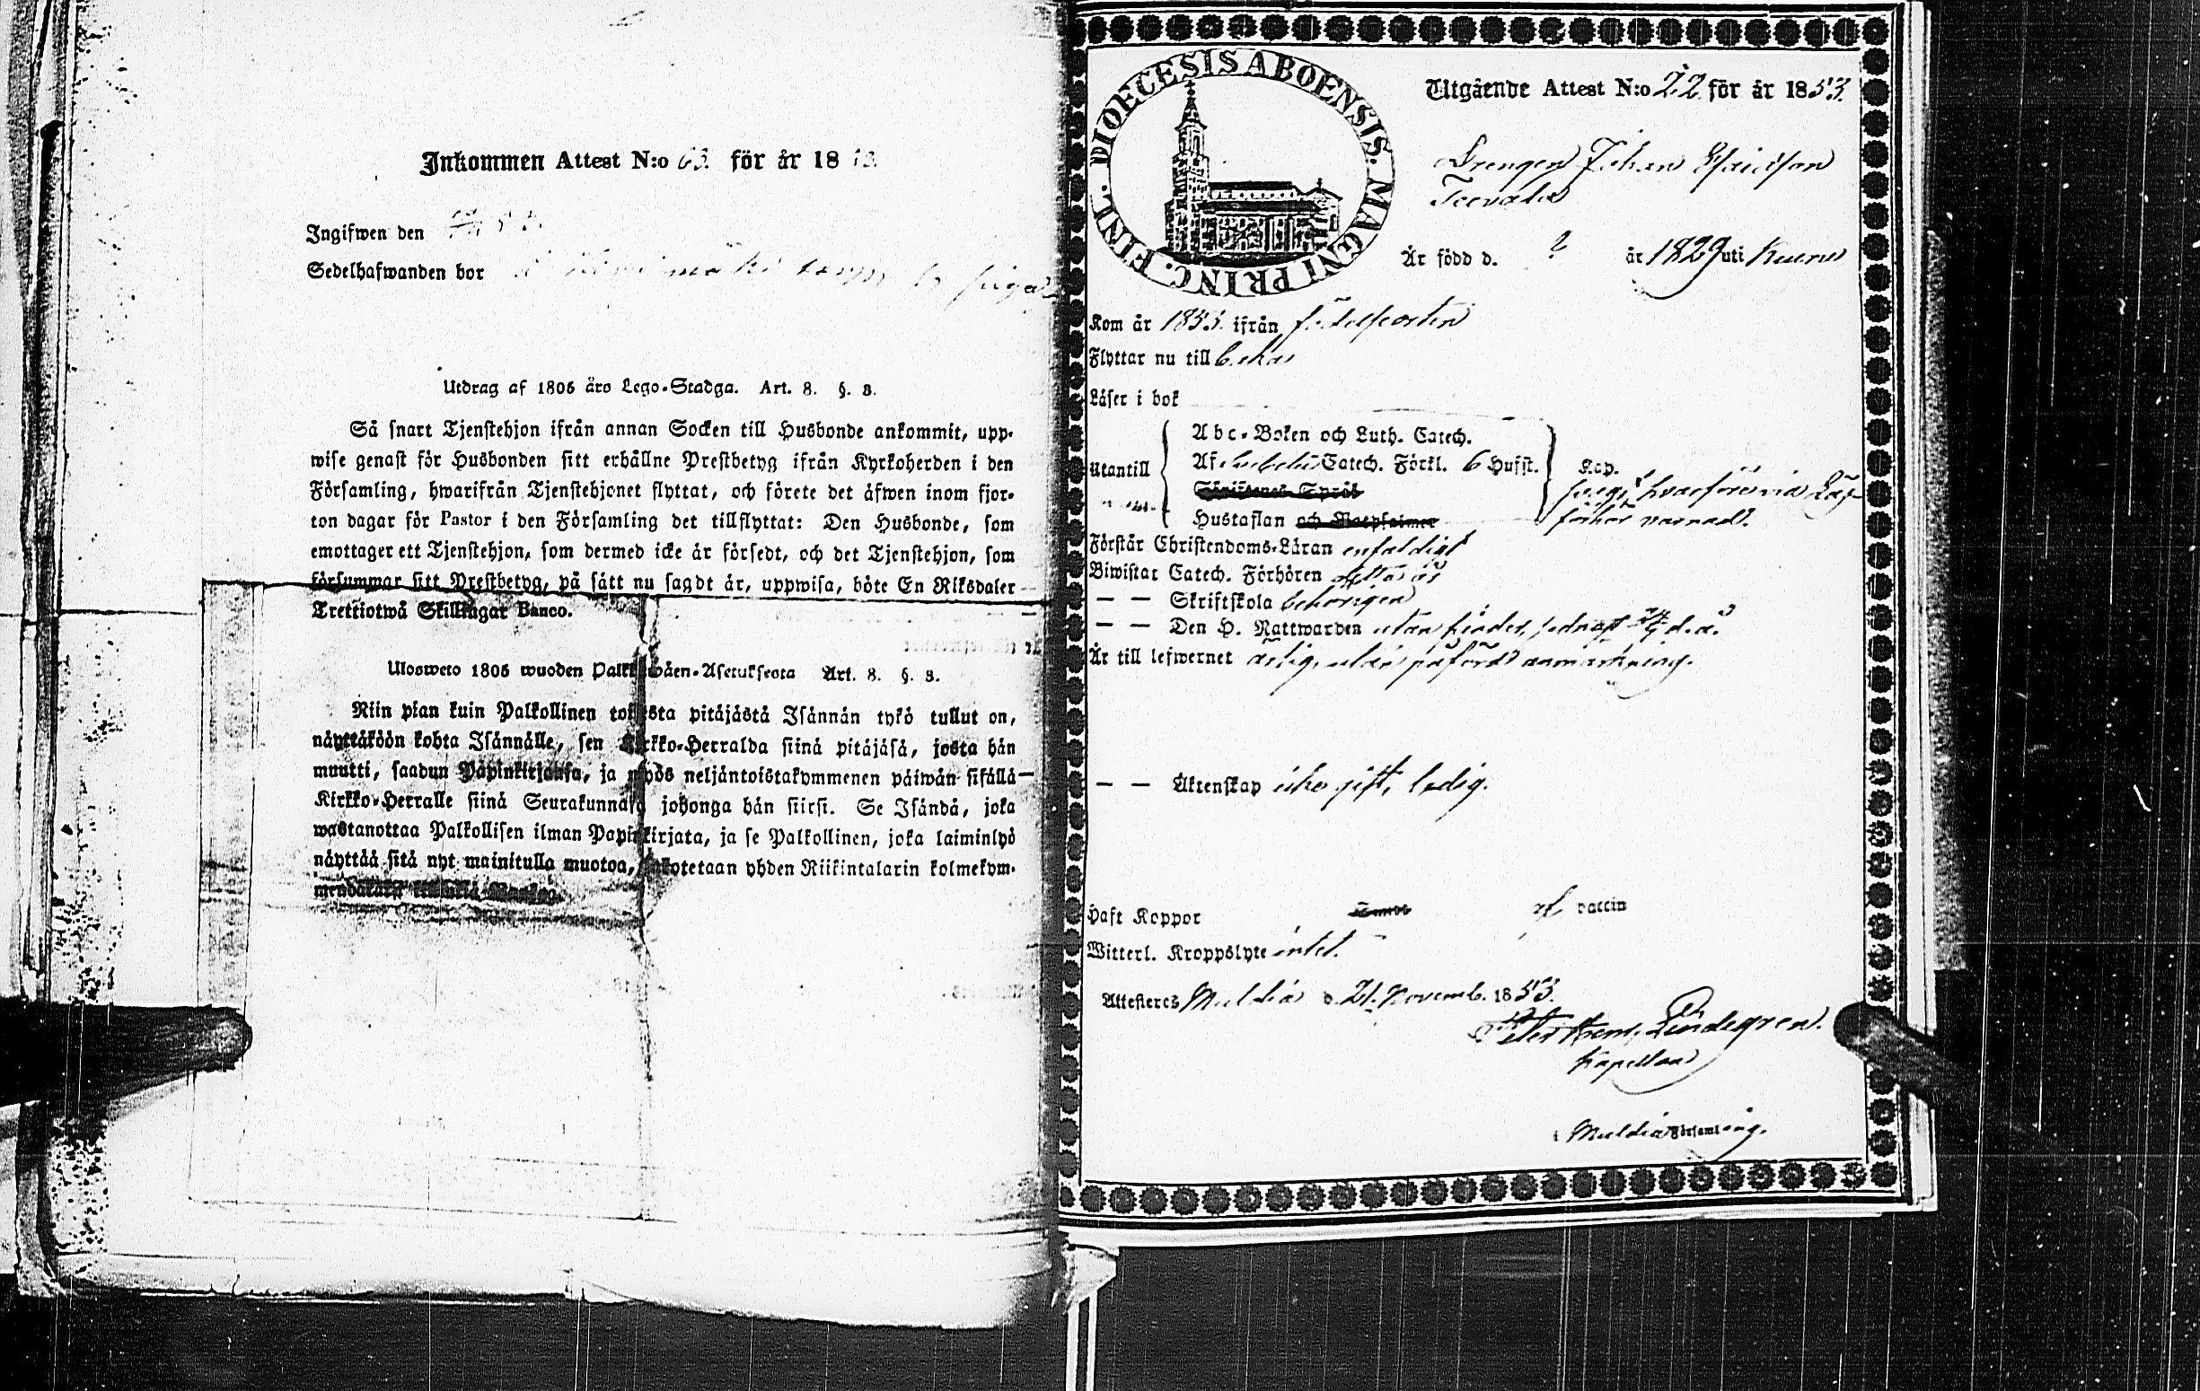 Inkommen Attest N:o 63. för år 18
Ingifwen den
Sedelhafwanden bor
Utdrag af 1805 års Lego-Stadga. Art. 8. §. 3.
Så snart Tjenstehjon ifrån annan Socken till Husbonde ankommit, upp-
wise genast för Husbonden sitt erhållne Prestbetyg ifrån Kyrkoherden i den
Församling, hwarifrån Tjenstehjonet flyttat, och förete det äfwen inom fjor-
ton dagar för Pastor i den Församling det tillflyttat: Den Husbonde, som
emottager ett Tjenstehjon, som dermed icke är försedt, och det Tjenstehjon, som
försummar sitt Prestbetyg, på sätt nu sagdt är, uppwisa, böte En Riksdaler
Trettiotwå Skillingar Banco.
Ulosweto 1805 wuoden Palkkawäen-Asetuksesta Art. 8. §. 3.
Niin pian kuin Palkollinen toisesta pitäjästä Isännän tykö tullut on,
näyttäköön kohta Isännälle, sen Kirkko-Herralda siinä pitäjäsä, josta hän
muutti, saadun Papinkirjansa, ja myös neljäntoistakymmenen päiwän sisällä
Kirkko-Herralle siinä Seurakunnasa johonga hän siirsi. Se Isändä, joka
wastanottaa Palkollisen ilman Papinkirjata, ja se Palkollinen, joka laiminlyö
näyttää sitä nyt mainitulla muotoa, sakotetaan yhden Riikintalarin kolmekym-
DIOECESIS ABOENSIS. MAGNI PRINC. FINL.
Utgående Attest N:o 22 för år 1853.
Drengen Johan Esaiasson
Är född d. ? år 1829 uti Kuru
Kom år 1853 ifrån födelseorten
Flyttar nu till
Läser i bok
Abc-Boken och Luth. Catech.
utantill Af Catech. Förkl. 6 Hufst. Kap.
Skriftenes Språk
Hustaflan och Botpsalmer
förhör varnad.
Förstår Christendoms-Läran enfaldigt
Biwistat Catech. Förhören detta år
— — Skriftskola behörigen
— — Den H. Nattwarden utan hinder, sednast d. å.
Är till lefwernet ärlig, utan påförd anmärkning.
— — Äktenskap icke gift, ledig.
Haft Koppor af vaccin
Witterl. Kroppslyte intet.
Attesteres Muldia d. 21. Novemb. 1853.
Lindegren.
Kapellan
i Muldia Församling.